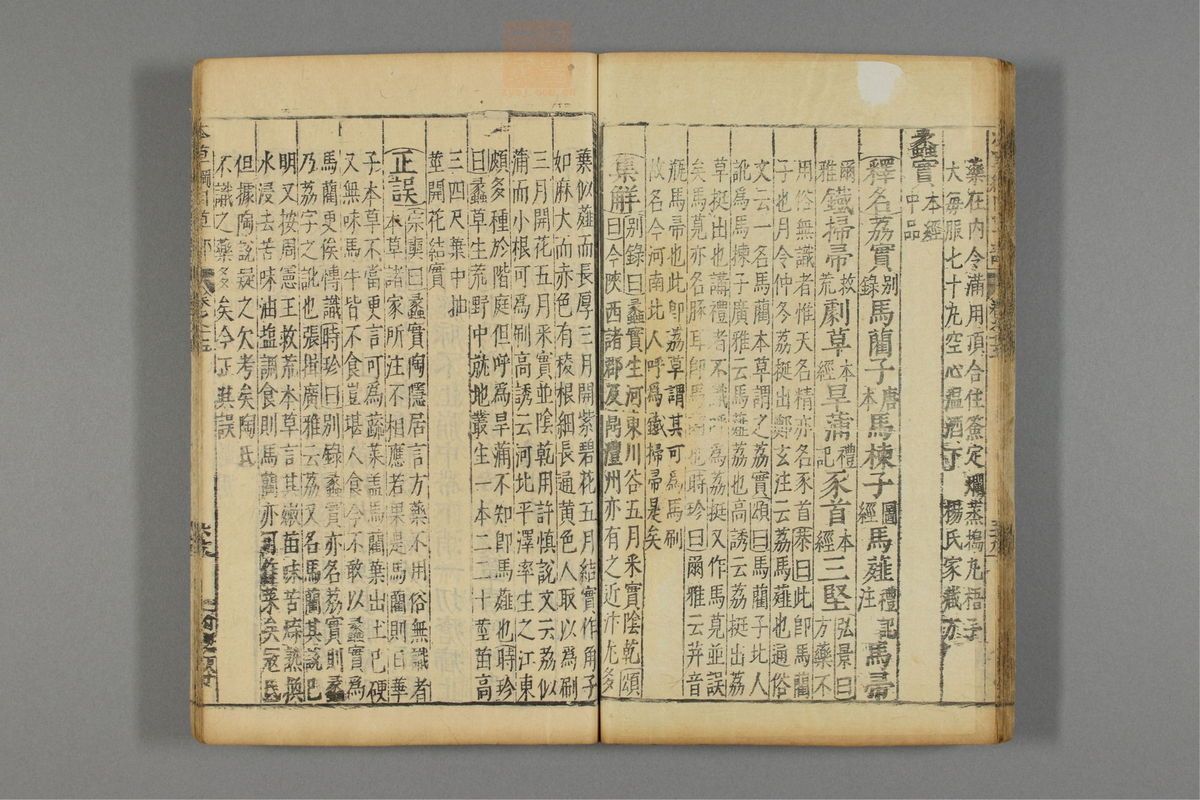 藥在內令滿用頂合住簽定爛蒸搗丸梧子
大每服七十丸空心溫酒下 楊氏家藏方
蠡實本經中品
釋名荔實別錄馬藺子唐本馬楝子圖經馬薤禮記注馬帚
爾雅鐵掃帚救荒劇草本經旱蒲禮記豕首本經三堅弘景曰方藥不
用俗無識者惟天名精亦名豕首恭曰此即馬藺
子也月令仲冬荔挺出鄭玄注云荔馬薤也通俗
文云一名馬藺本草謂之荔實頌曰馬藺子北人
訛為馬楝子廣雅云馬薤荔也高誘云荔挺出荔
草挺出也講禮者不識呼為荔挺又作馬莧並誤
矣馬莧亦名豚耳即馬齒也時珍曰爾雅云荓音
瓶馬帚也此即荔草謂其可為馬刷
故名今河南北人呼為鐵掃帚是矣
集解別錄曰蠡實生河東川谷五月采實陰乾頌
曰今陝西諸郡及鼎澧州亦有之近汴尤多
葉似薤而長厚三月開紫碧花五月結實作角子
如麻大而赤色有稜根細長通黃色人取以為刷
三月開花五月采實並陰乾用許慎說文云荔似
蒲而小根可為刷高誘云河北平澤率生之江東
頗多種於階庭但呼為旱蒲不知即馬薤也時珍
曰蠡草生荒野中就地叢生一本二三十莖苗高
三四尺葉中抽
莖開花結實
正誤宗奭曰蠡實陶隱居言方藥不用俗無識者
本草諸家所注不相應若果是馬藺則日華
子本草不當更言可為蔬菜蓋馬藺葉出土已硬
又無味馬牛皆不食豈堪人食今不敢以蠡實為
馬藺更俟博識時珍曰別錄蠡實亦名荔實則蠡
乃荔字之訛也張揖廣雅云荔又名馬藺其說已
明又按周憲王救荒本草言其嫩苗味苦煠熟換
水浸去苦味油鹽調食則馬藺亦可作菜矣寇氏
但據陶說疑之欠考矣陶氏
不識之藥多矣今正其誤